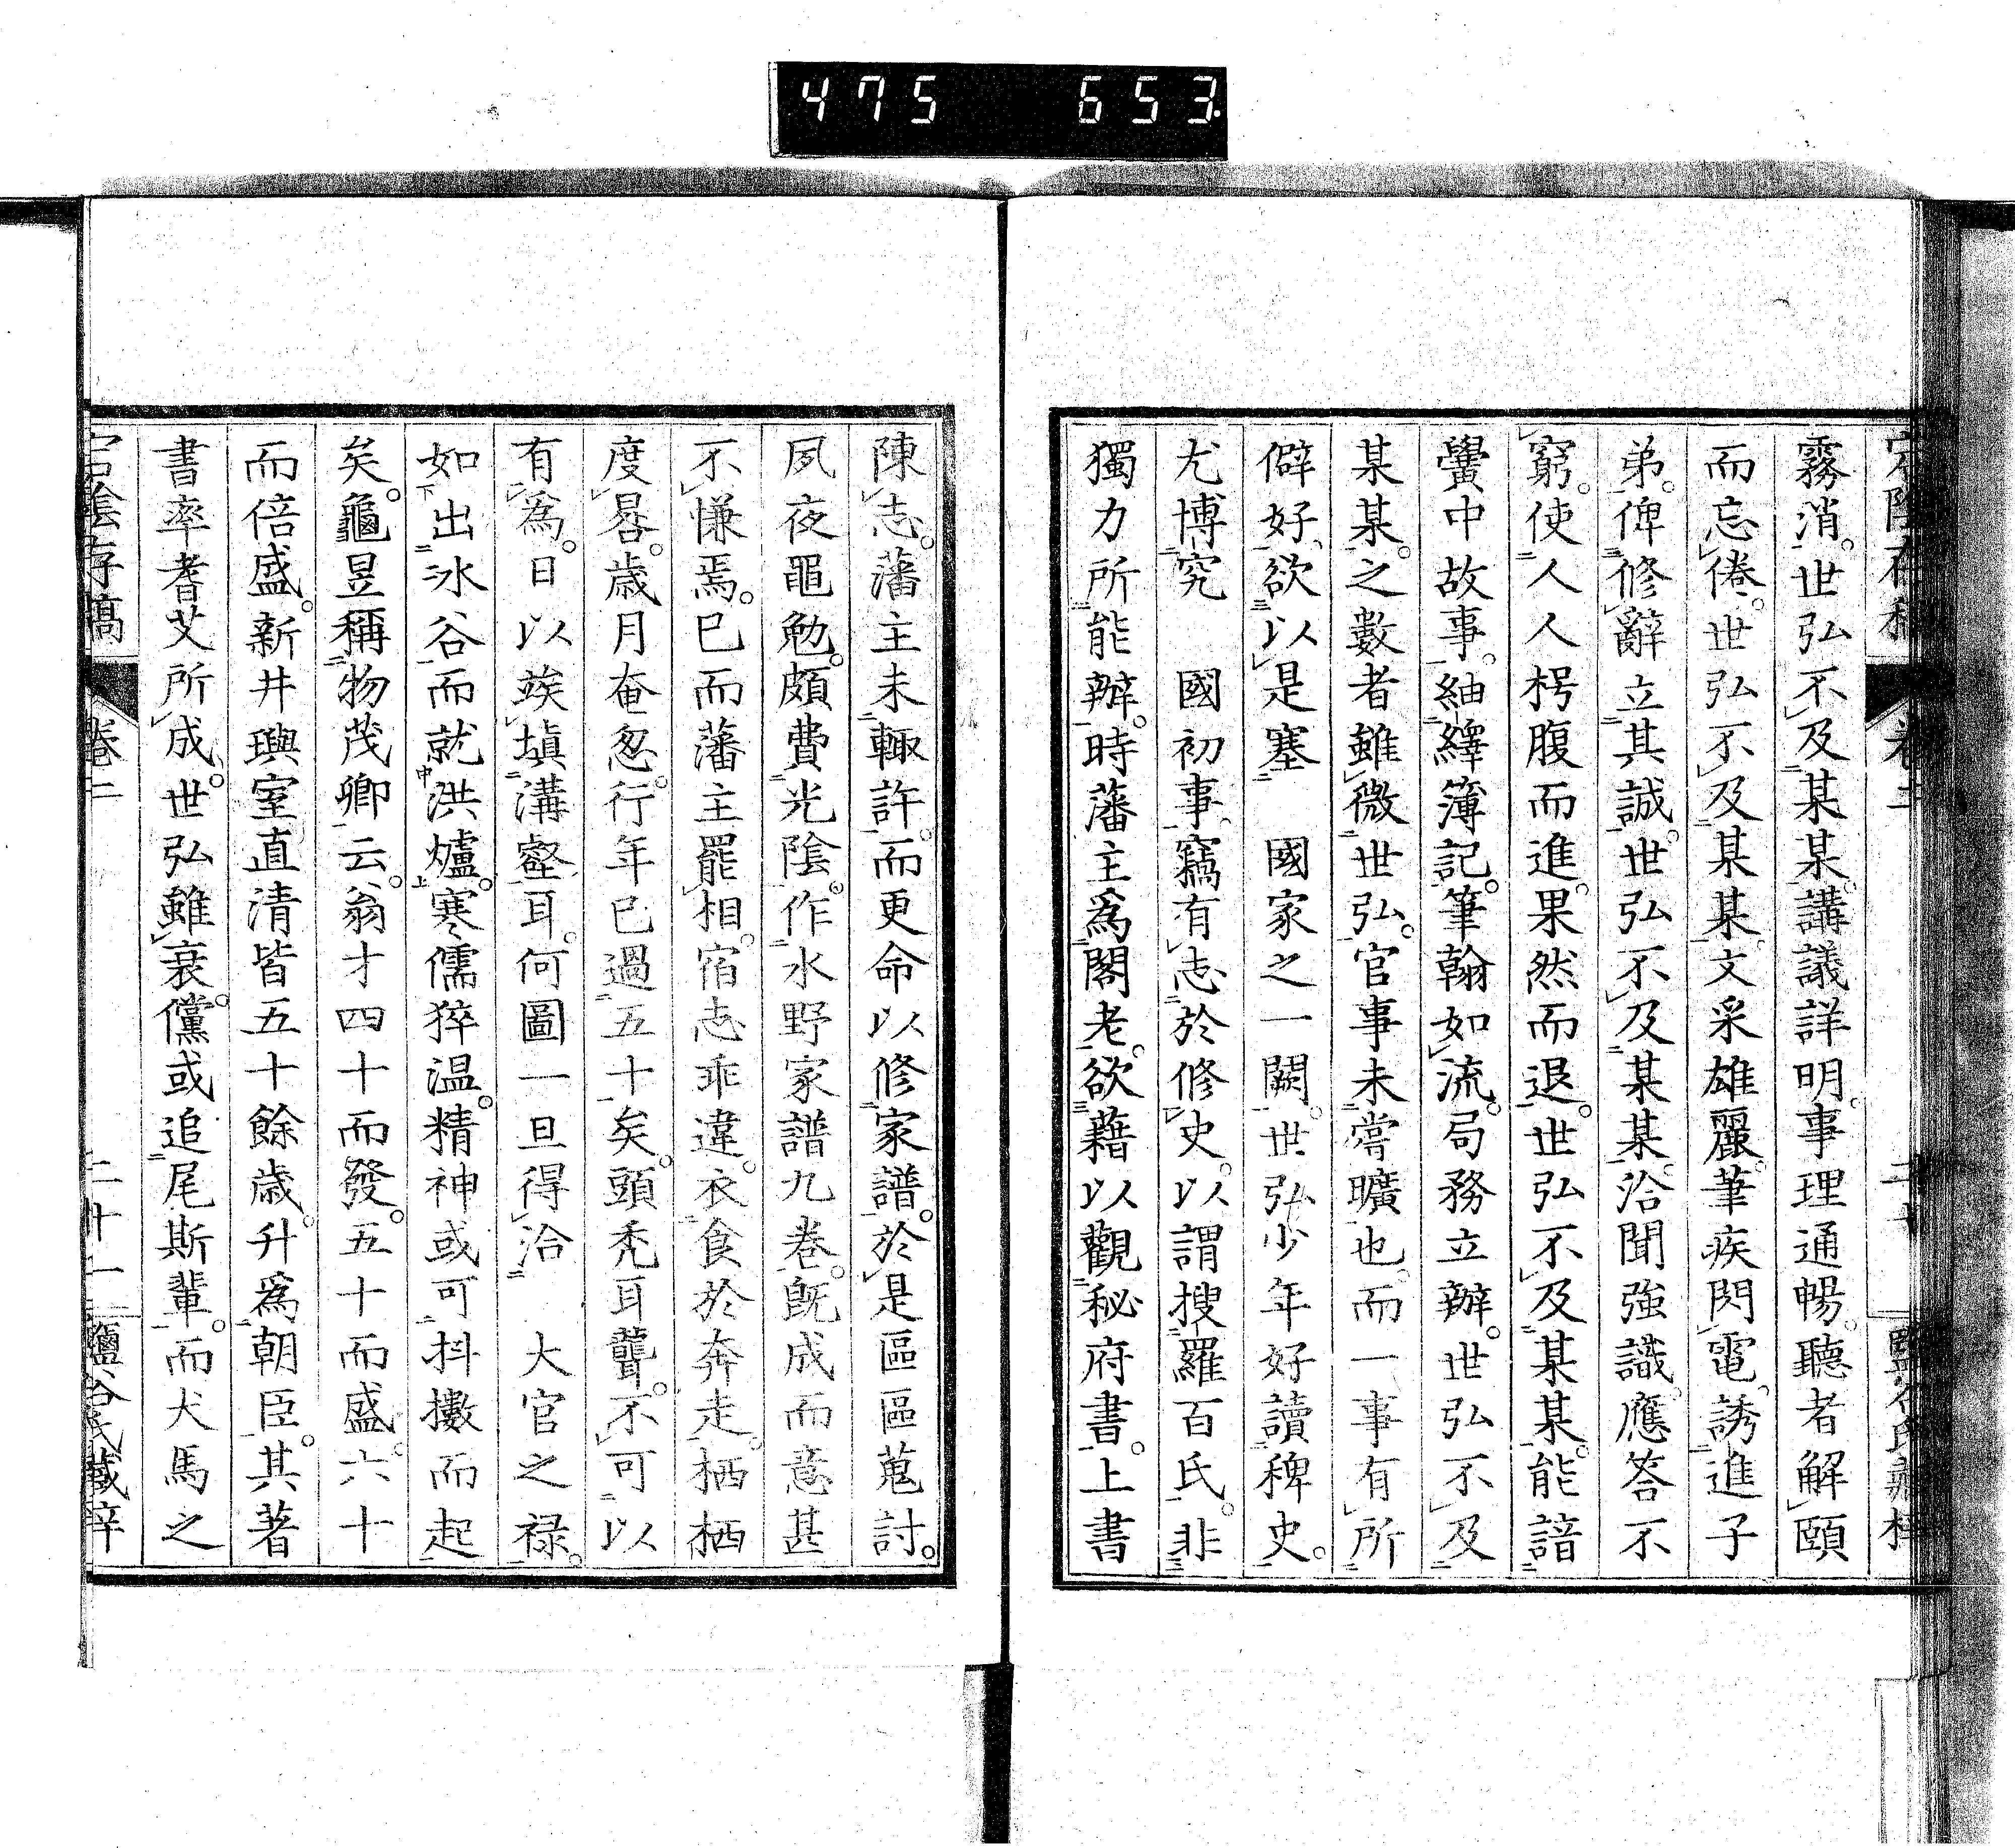 475 653
霧消。世弘不及某某。講議詳明。事理通暢。聽者解頤
而忘倦。世弘不及某某。文采雄麗。筆疾閃電。誘進子
弟。俾修辭立其誠。世弘不及某某。洽聞強識。應答不
窮。使人人人枵腹而進。果然而退。世弘不及某某。能諳
黌中故事。紬繹簿記。筆翰如流。局務立辦。世弘不及
某某。之數者雖微世弘。官事未嘗曠也。而一事有所
僻好。欲以是塞 國家之一闕。世弘少年好讀稗史。
尤博究 國初事。竊有志於修史。以謂搜羅百氏。非
獨力所能辦。時藩主爲閣老。欲藉以觀秘府書。上書
陳志。藩主未輙許。而更命以修家譜。於是區區蒐討。
夙夜黽勉。頗費光陰。作水野家譜九卷。旣成而意甚
不慊焉。已而藩主罷相。宿志乖違。衣食於奔走。栖栖
度晷。歳月奄忽。行年已過五十矣。頭禿耳聾。不可以
有爲。日以竢塡溝壑耳。何圖一旦得洽 大官之禄。
如出冰谷而就洪爐。寒儒猝温。精神或可抖擻而起
矣。龜昱稱物茂卿云。翁才四十而發。五十而盛。六十
而倍盛。新井璵室直清皆五十餘歳。升爲朝臣。其著
書率耆艾所成。世弘雖衰。儻或追尾斯輩。而犬馬之
宕陰存稿 卷二 二十一 鹽谷氏藏梓